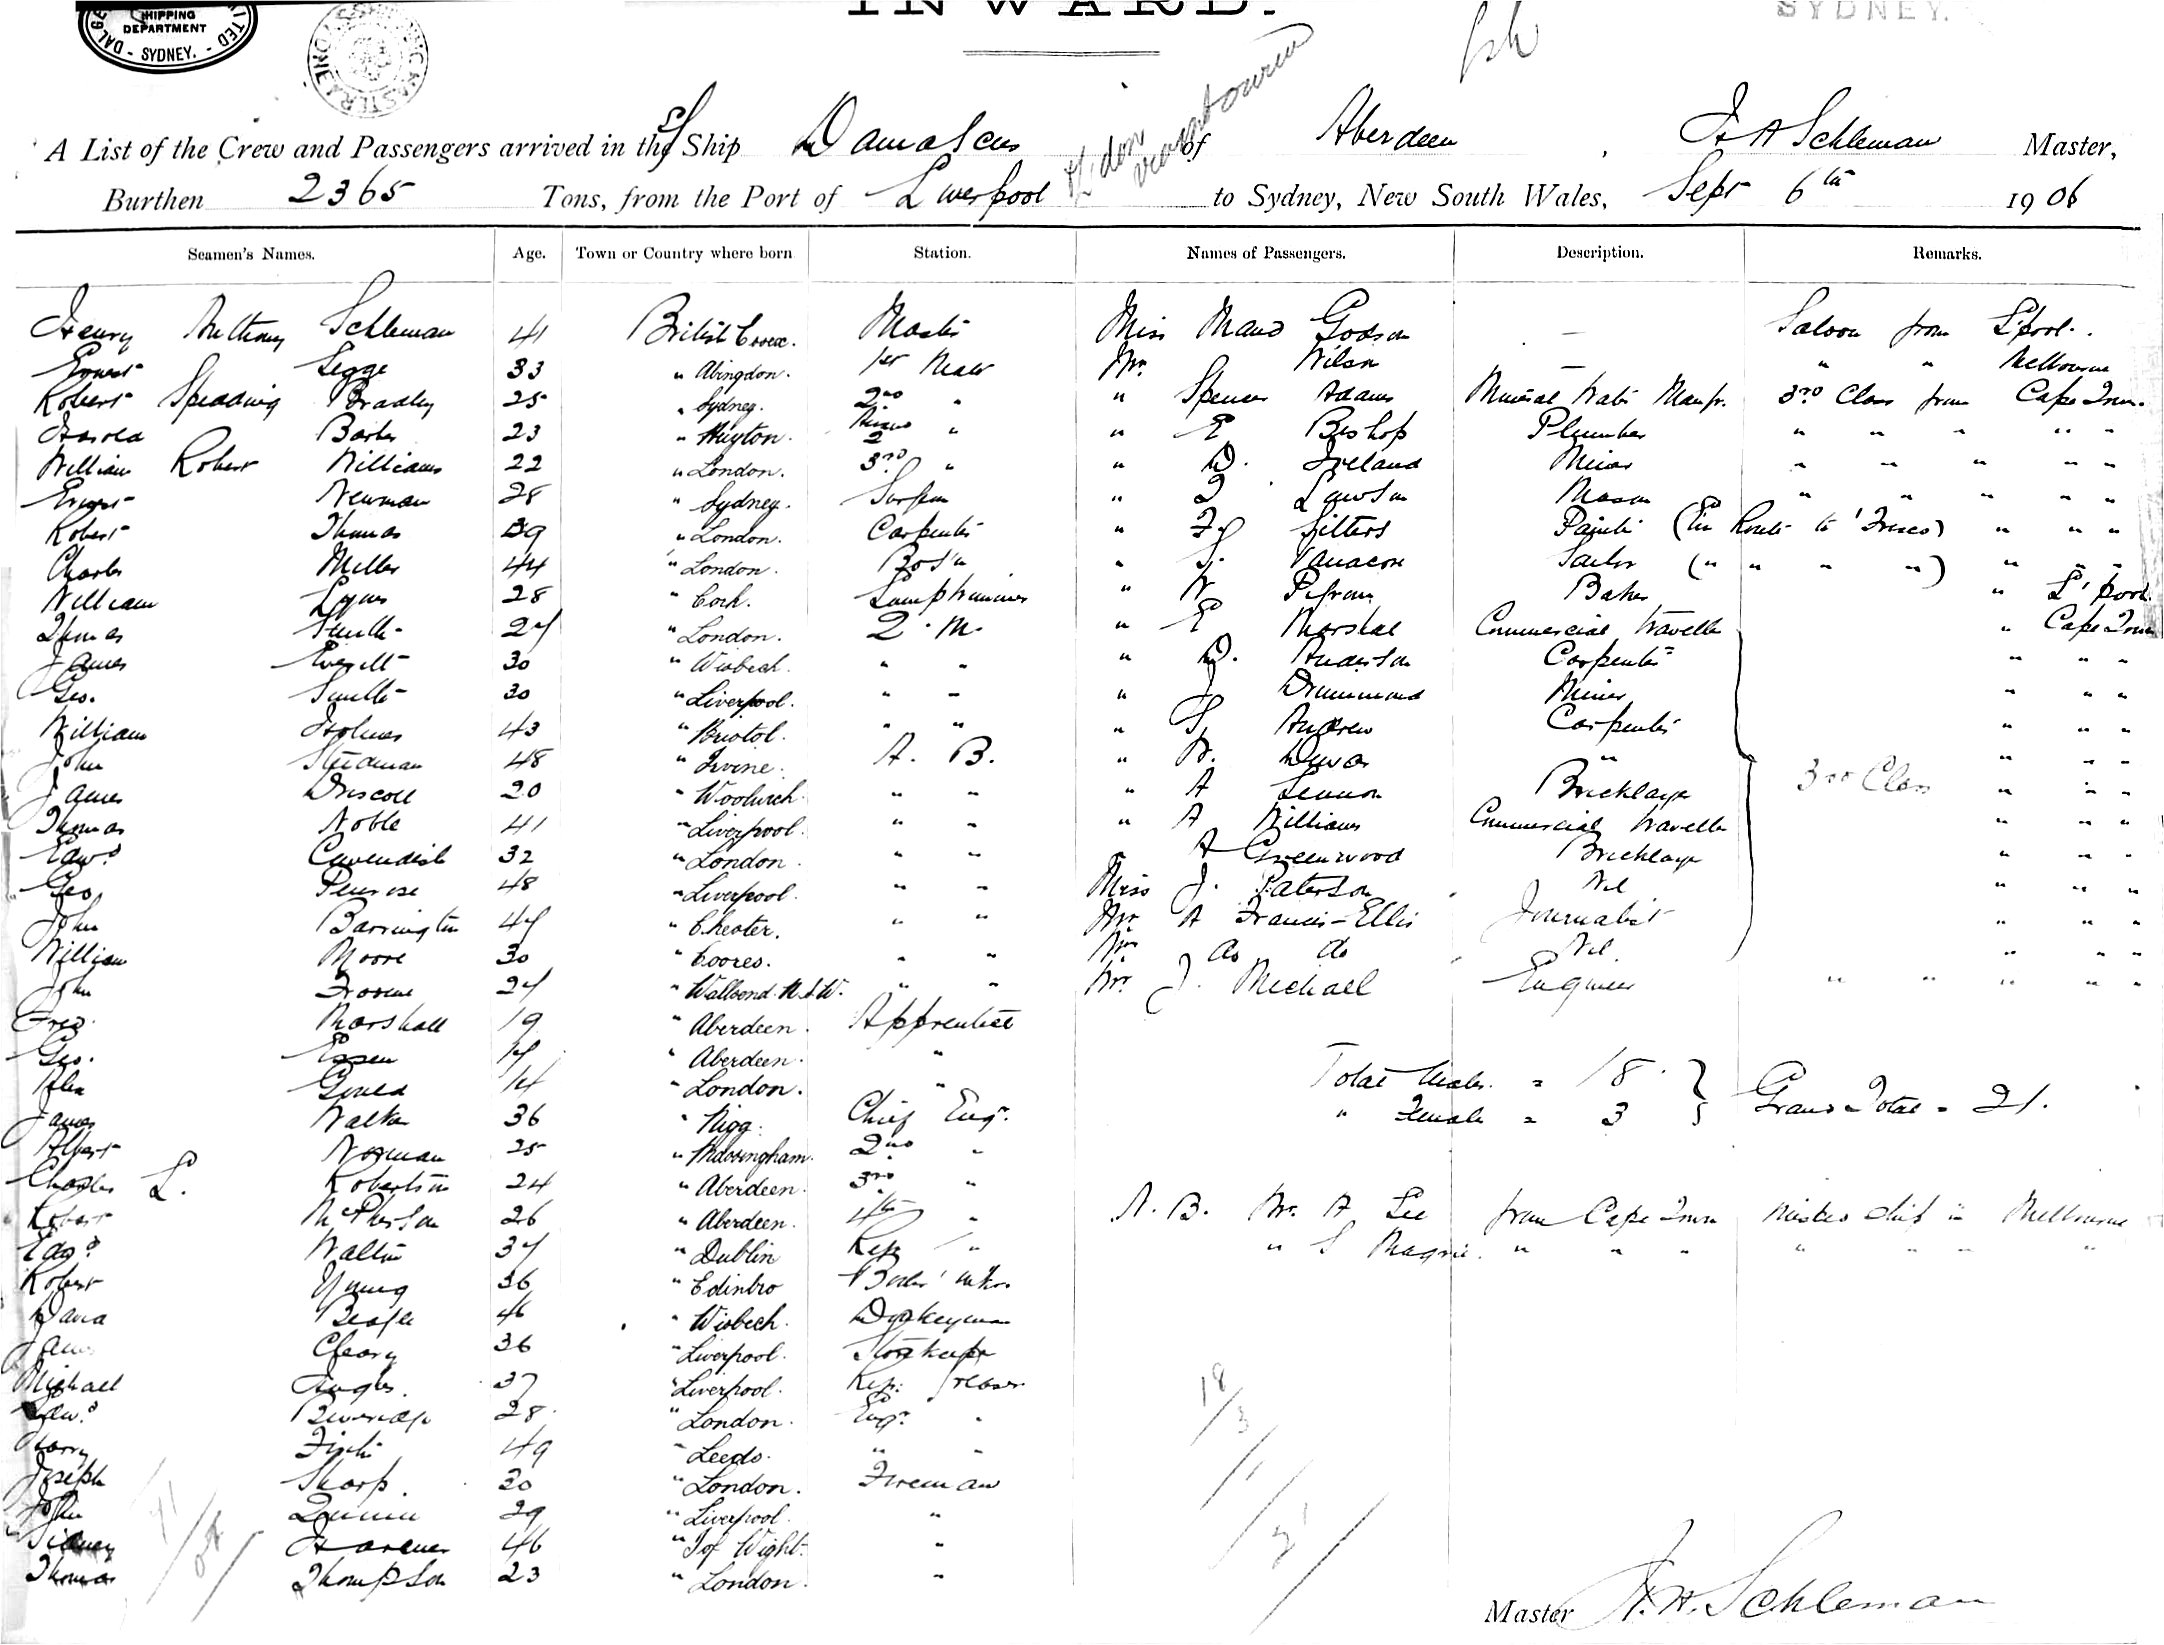 INWARD.
SYDNEY.
SHIPPING
DEPARTMENT
SYDNEY.
A List of the Crew and Passengers arrived in the S/ Ship Damascus of Aberdeen, H A Schleman Master,
Burthen 2365 Tons, from the Port of Liverpool to Sydney, New South Wales, Sept 6th 1906
Seamen's Names. Age. Town or Country where born Station. Names of Passengers. Description. Remarks.
Henry Anthony Schleman 41 British Master Miss Maud Godson — Saloon from L'pool.
Ernest Legge 33 " Abingdon. 1st Mate Mr. Wilson — " " Melbourne
Robert Spedding Bradley 25 " Sydney. 2nd " " Spencer Adams Mineral Water Manfr. 3rd Class from Cape Town.
Harold Barber 23 " Huyton. " " E Bishop Plumber " " " " "
William Robert Williams 22 " London. 3rd " " D. Ireland Miner " " " " "
Ernest Newman 28 " Sydney. Surgeon " Lawson Mason " " " " "
Robert Thomas 39 " London. Carpenter " Sitters Painter (En Route to 'Frisco) " " "
Charles Miller 44 " London. Bos'n " Sailor (" " " ") " " "
William Lyons 28 " Cork. Lamptrimmer " W Pegram Baker " L'pool.
Thomas Smith 27 " London. Q. M. " E Marshal Commercial Traveller " Cape Town
James Everitt 30 " Wisbech. " " " D. Anderson Carpenter " " "
Geo. Smith 30 " Liverpool. " " " J Drummond Miner " " "
William Holmes 43 " Bristol. " " " Andrew Carpenter " " "
John Stedman 48 " Irvine. A. B. " W. Dewar " " " "
James Driscoll 20 " Woolwich. " " " A Lennon Bricklayer 3rd Class " " "
Thomas Noble 41 " Liverpool. " " " A Williams Commercial Traveller " " "
Edwd. Cavendish 32 " London. " " " A Greenwood Bricklayer " " "
Geo. Penrose 48 " Liverpool. " " Miss J. Paterson Nil " " "
John Barrington 47 " Chester. " " Mr A Francis-Ellis Journalist " " "
William Moore 30 " " " Mrs do do Nil " " "
John 27 " Wallsend. N.S.W. " " Mr. J. Michael Engineer " " " " "
Fred. Marshall 19 " Aberdeen. Apprentice
Geo. 17 " Aberdeen. "
Alex Gould 14 " London. "
Total Males. = 18
James Walker 36 " Nigg. Chief Engr.
" Female = 3 Grand Total = 21.
Albert Norman 25 " 2nd "
Charles L. Robertson 24 " Aberdeen. 3rd "
Robert McPherson 26 " Aberdeen. 4th " N. B. Mr. A Lee from Cape Town missed ship in Melbourne
Edgd. Walton 37 " Dublin Refg " " S " " " " " "
Robert Young 36 " Edinbro Boiler mkr.
David 46 " Wisbech. Donkeyman
James Cleary 36 " Liverpool. Storekeeper
Michael Hughes. 37 " Liverpool. Refg. Greaser
Edwd. Beveridge 28 " London. Engr. "
Harry 49 " Leeds. " "
Joseph Sharp. 30 " London. Fireman
John Quinn 29 " Liverpool. "
Sidney 46 " I of Wight. "
Thomas Thompson 23 " London. "
18/3
Master H. A. Schleman